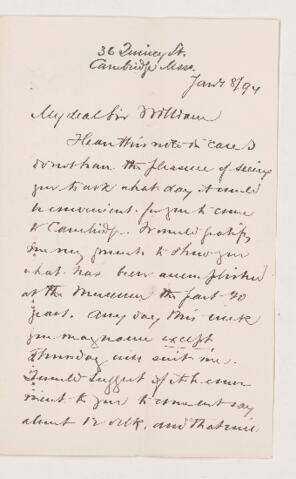 36 Quincy St.
Cambridge Mass.
Jan'y 8/94
My dear Sir William
I leave this note in case I
do not have the pleasure of seeing
you to ask what day it would
be convenient for you to come
to Cambridge. It would gratify
me very greatly to show you
what has been accomplished
at the Museum the past 20
years. Any day this week
you may name except
Thursday will suit me.
I would suggest if it be conve
nient to you to come out say
about 12 o'clk. and that